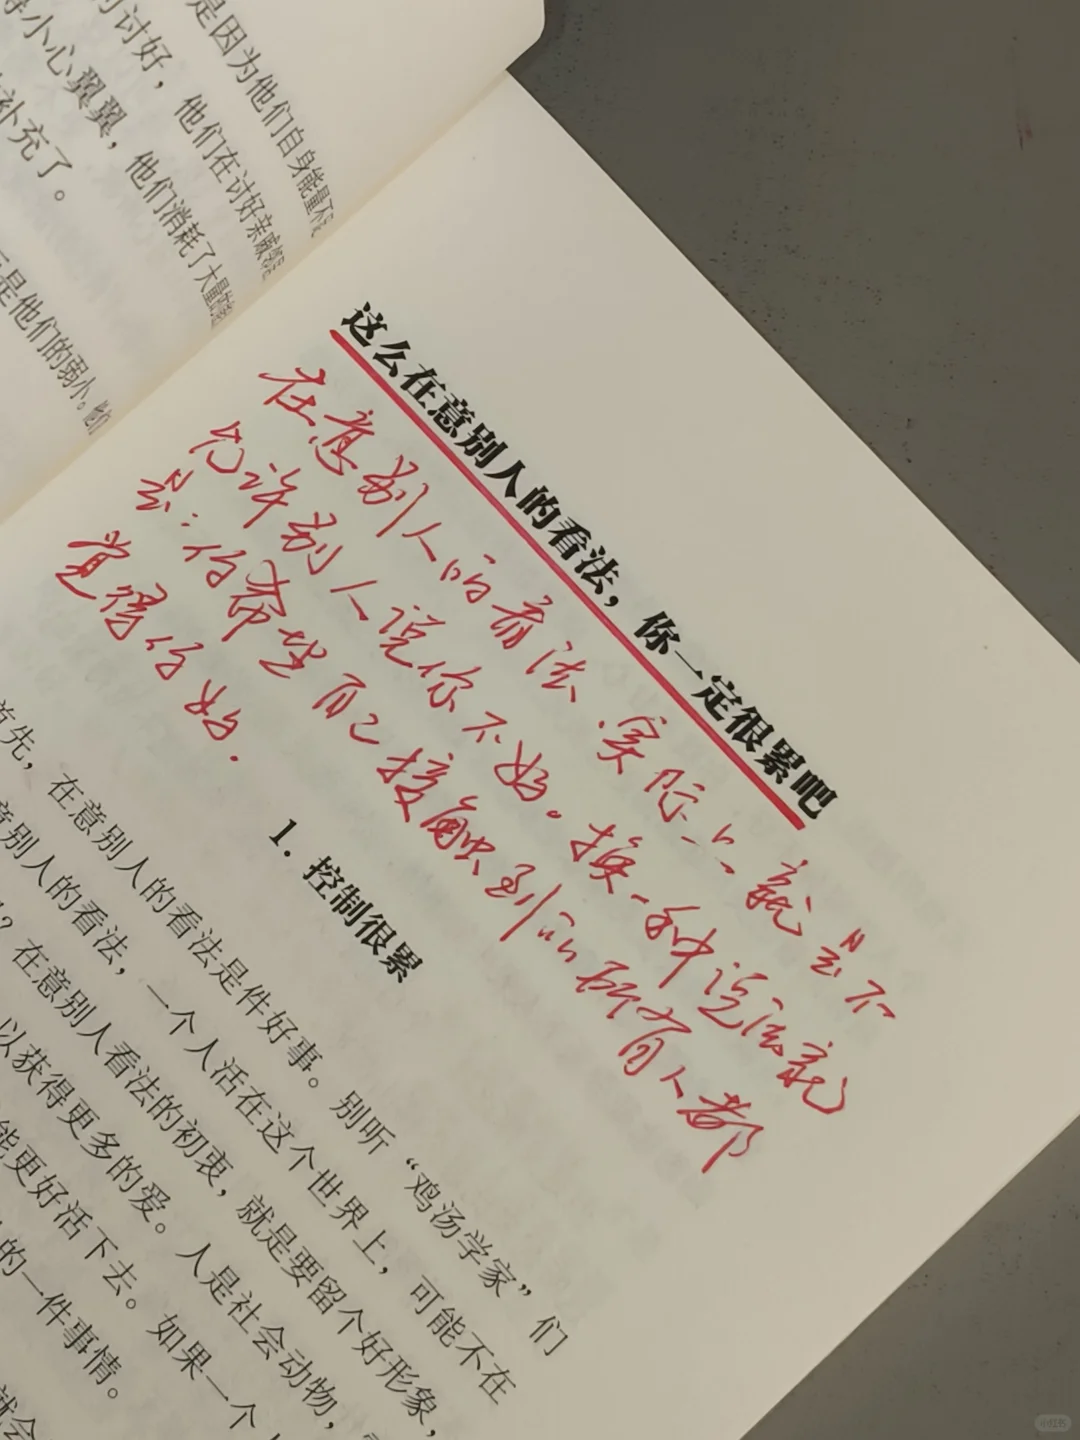 是因为他们自身能量不
的讨好，他们在讨好亲戚
小心翼翼，他们消耗了大量
补充了。
是他们的弱小。他们
这么在意别人的看法，你一定很累吧
在意别人的看法.实际上就是不
允许别人说你不好。换一种说法就
是：你希望自己接触到的所有人都
觉得你好.
1. 控制很累
首先，在意别人的看法是件好事。别听“鸡汤学家”们
意别人的看法，一个人活在这个世界上，可能不在
？在意别人看法的初衷，就是要留个好形象，
以获得更多的爱。人是社会动物，
能更好活下去。如果一个
的一件事情。
就会
小红书